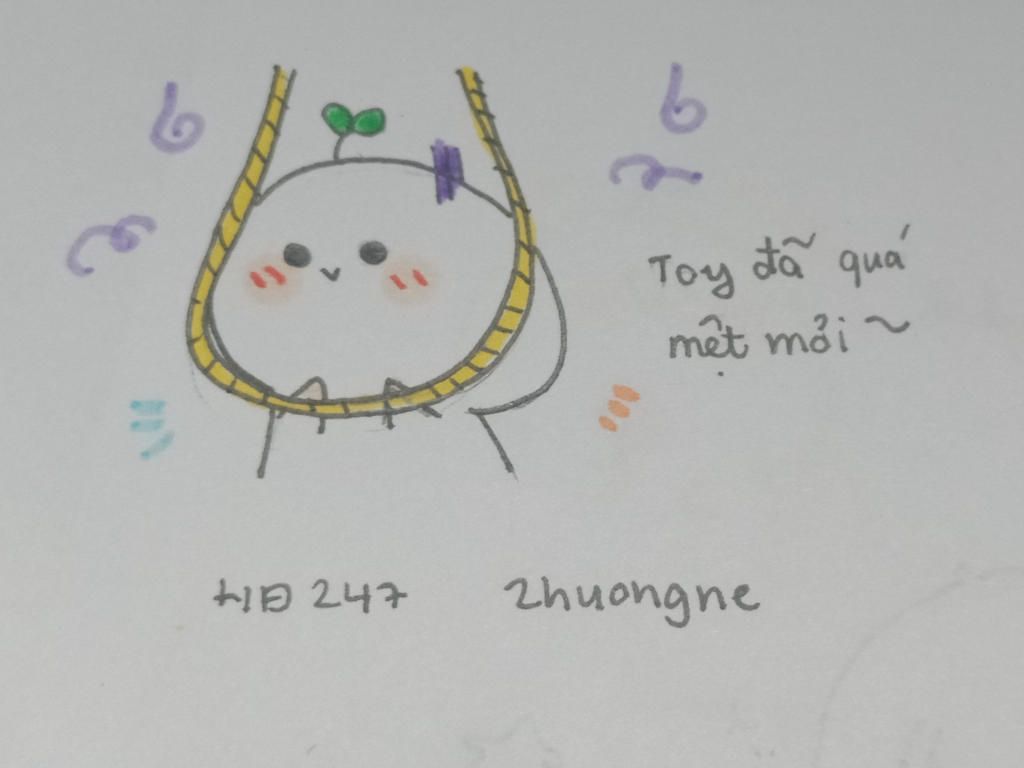 Toy đã quá
mệt mỏi ~
HĐ 247
2huongne